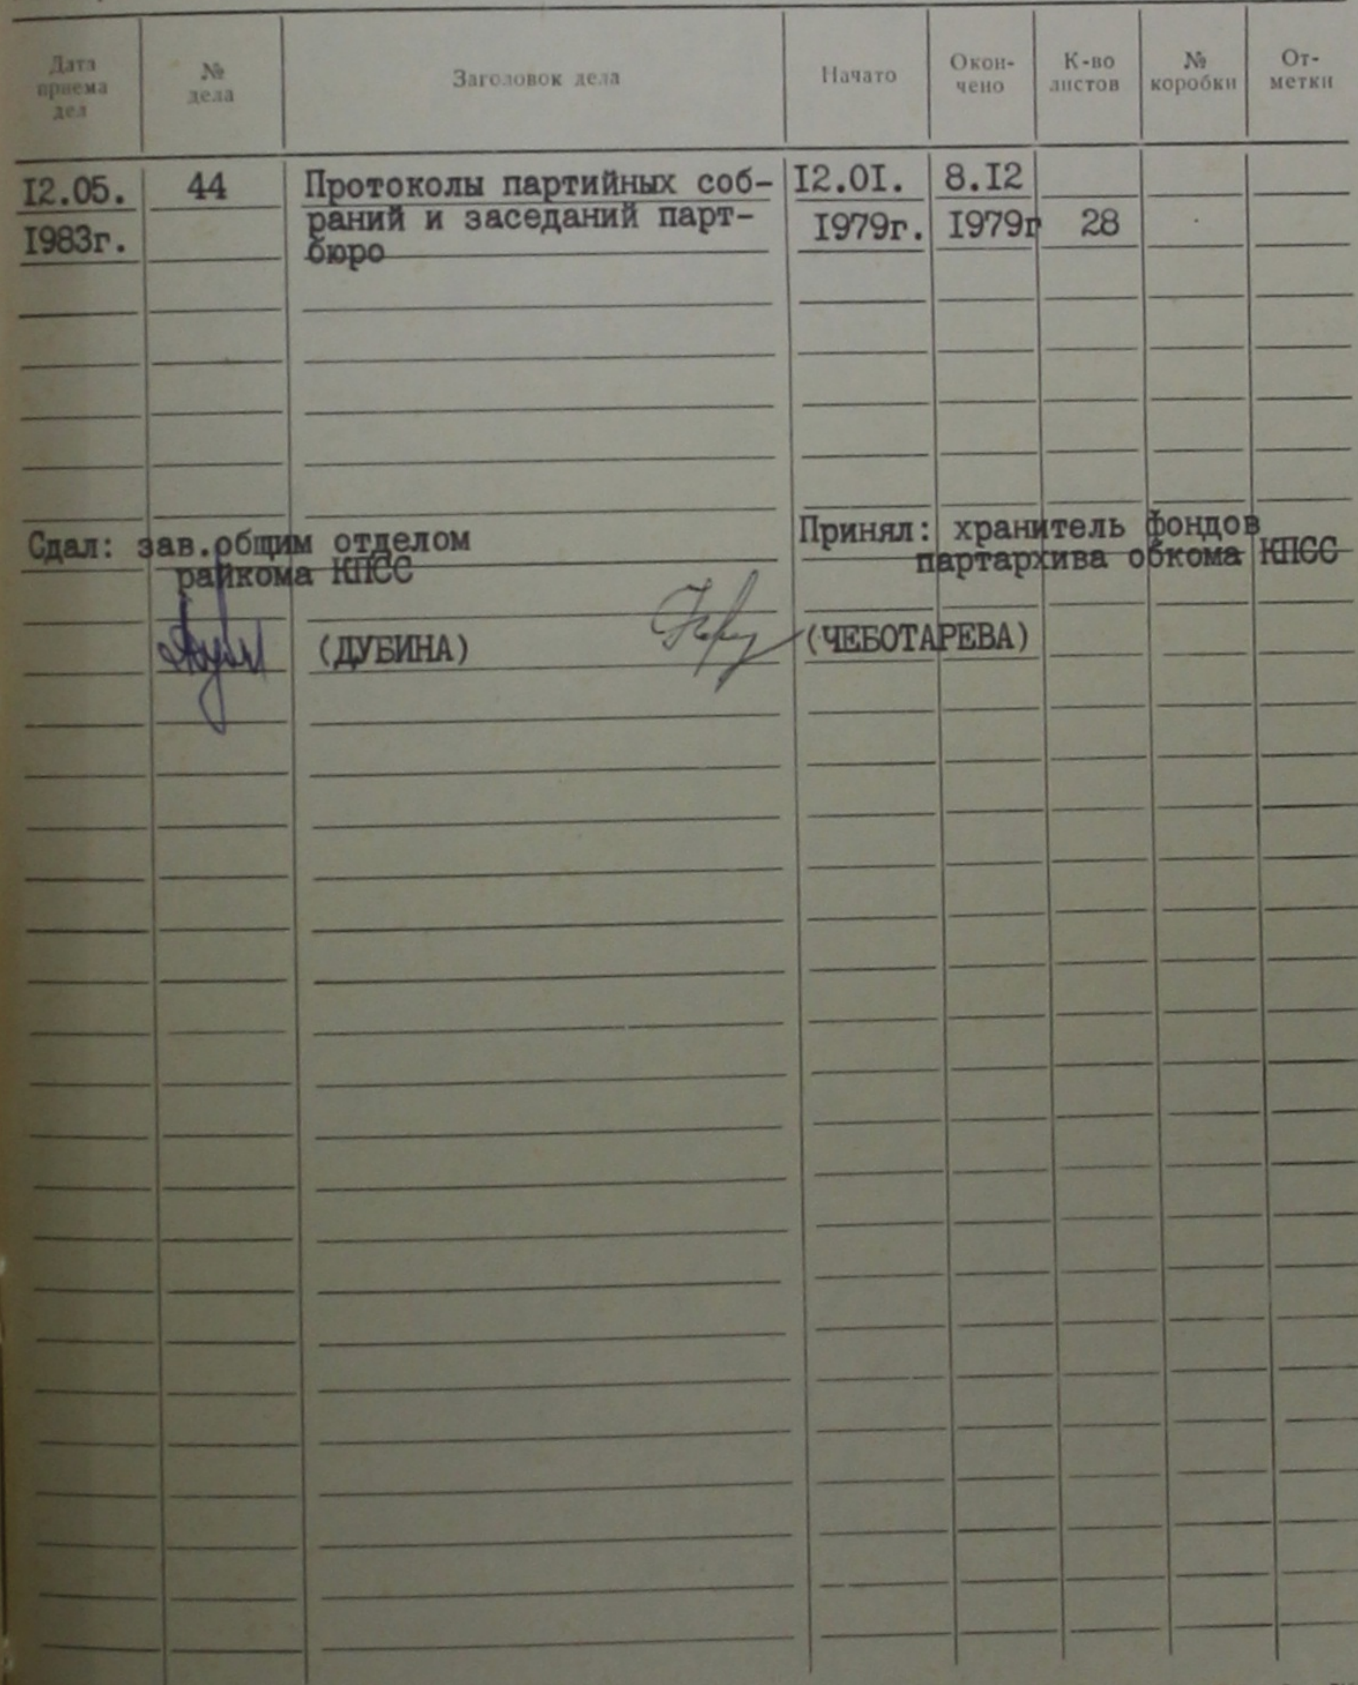 Дата приема дел
№ дела
Заголовок дела
Начато
Окон-
чено
К-во
листов
№
коробки
От-
метки
I2.05. 44 Протоколы партийных соб- I2.0I. 8.I2
I983г. раний и заседаний парт- I979г. I979г 28
бюро
Сдал: зав.общим отделом
райкома КПСС
Принял: хранитель фондов
партархива обкома КПСС
(ДУБИНА) (ЧЕБОТАРЕВА)